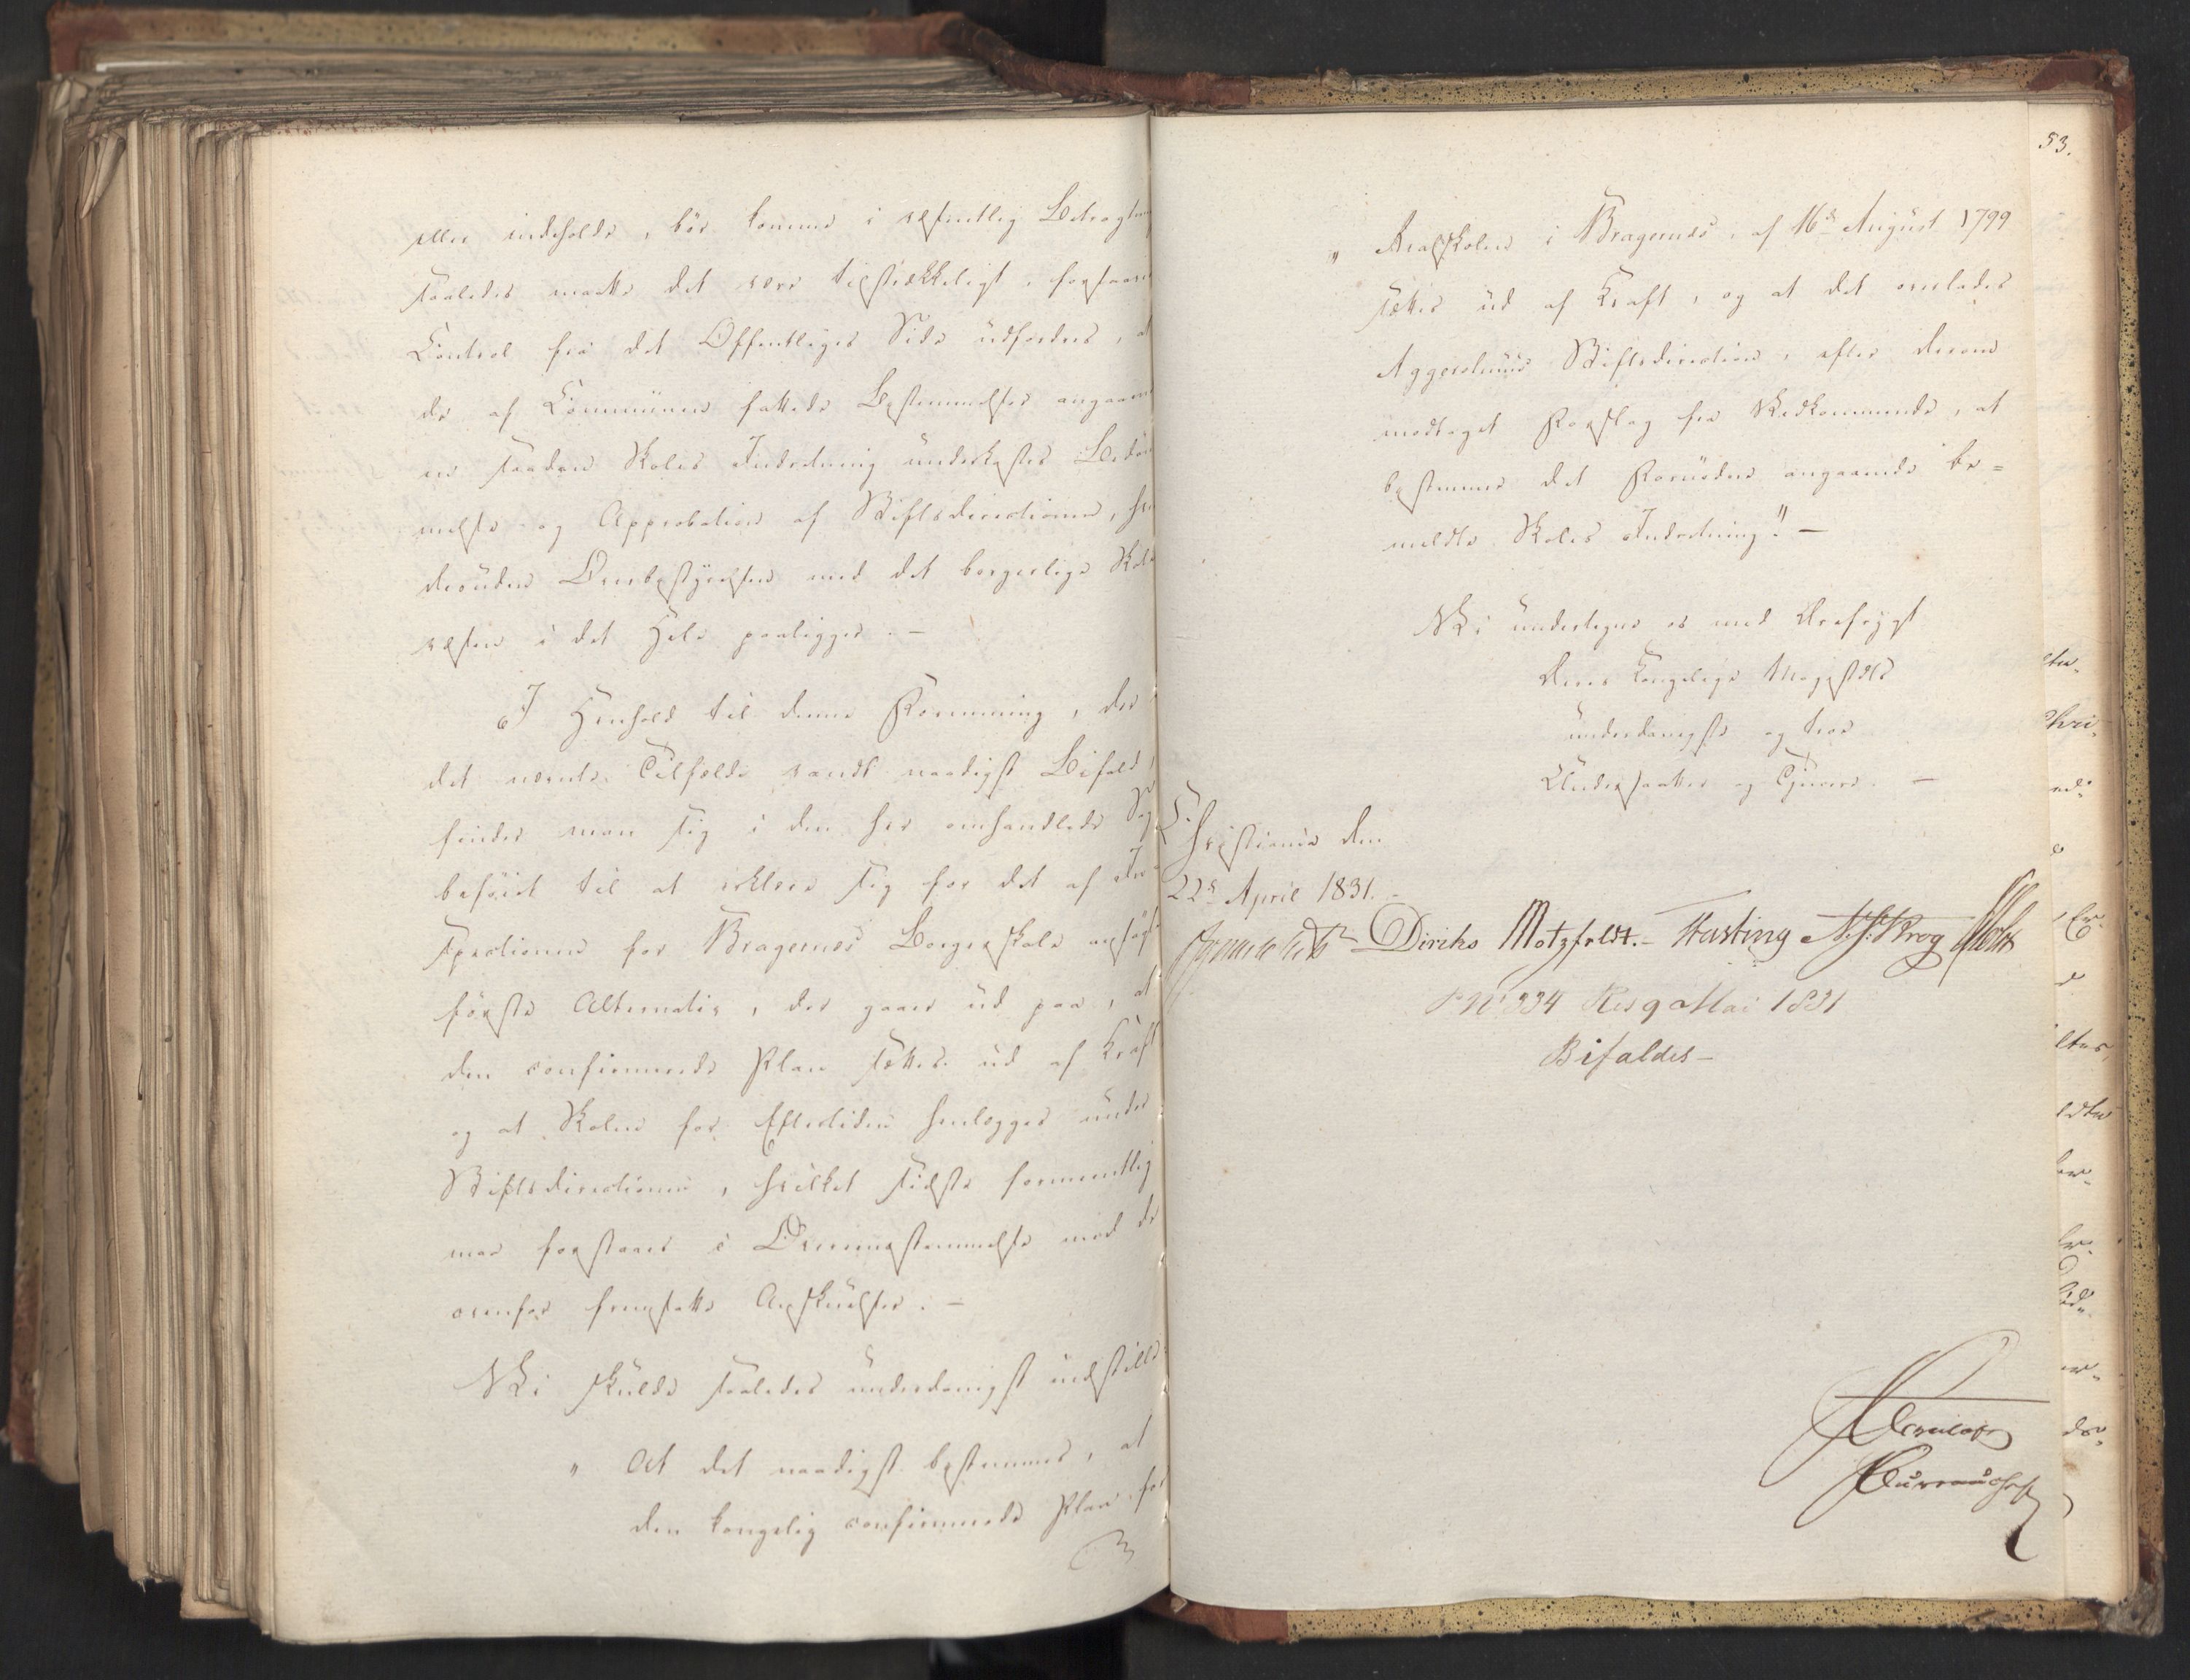 eller indeholde, bör komme i væsentlig Betragtning
saaledes maatte det være tilstrækkeligt, forsaavidt
Control fra det Offentliges Side udfordres, at
de af Communen fattede Bestemmelser angaaende
en saadan Skoles Indretning underkastes Bedöm¬
melse og Approbation af Stiftsdirectionen, hvem
desuden Overbestyrelsen med det borgerlige Skole
væsen i det Hele paaligger. –
I Henhold til denne Formening, der i
det nævnte Tilfælde vandt naadigst Bifald,
finder man sig i den her omhandlede Sag
beföiet til at erklære sig for det af In¬
spectionen for Bragernes Borgerskole ansögte
förste Alternativ, der gaaer ud paa, at
den confirmerede Plan sættes ud af Kraft
og at Skolen for Eftertiden henlægges under
Stiftsdirectionen, hvilket sidste formentlig
maa forstaaes i Overensstemmelse med de
ovenfor fremsatte Anskuelser. –
Vi skulde saaledes underdanigst indstille:
" At det naadigst bestemmes, at
den kongelig confirmerede Plan for
53.
" Realskolen i Bragernes, af 16de August 1799
sættes ud af Kraft, og at det overlades
Aggershuus Stiftsdirection, efter derom
modtaget Forslag fra Vedkommende, at
bestemme det Fornödne angaaende be=
meldte Skoles Indretning". –
Vi undertegne os med Ærefrygt
Deres Kongelige Majestæts
underdanigste og troe
Undersaatter og Tjenere. –
Christiania den
22de April 1831. –
Diriks Motzfeldt. – Fasting Krog Holst
No 334 Res 9 Mai 1831
Bifaldes –
Bureauchef